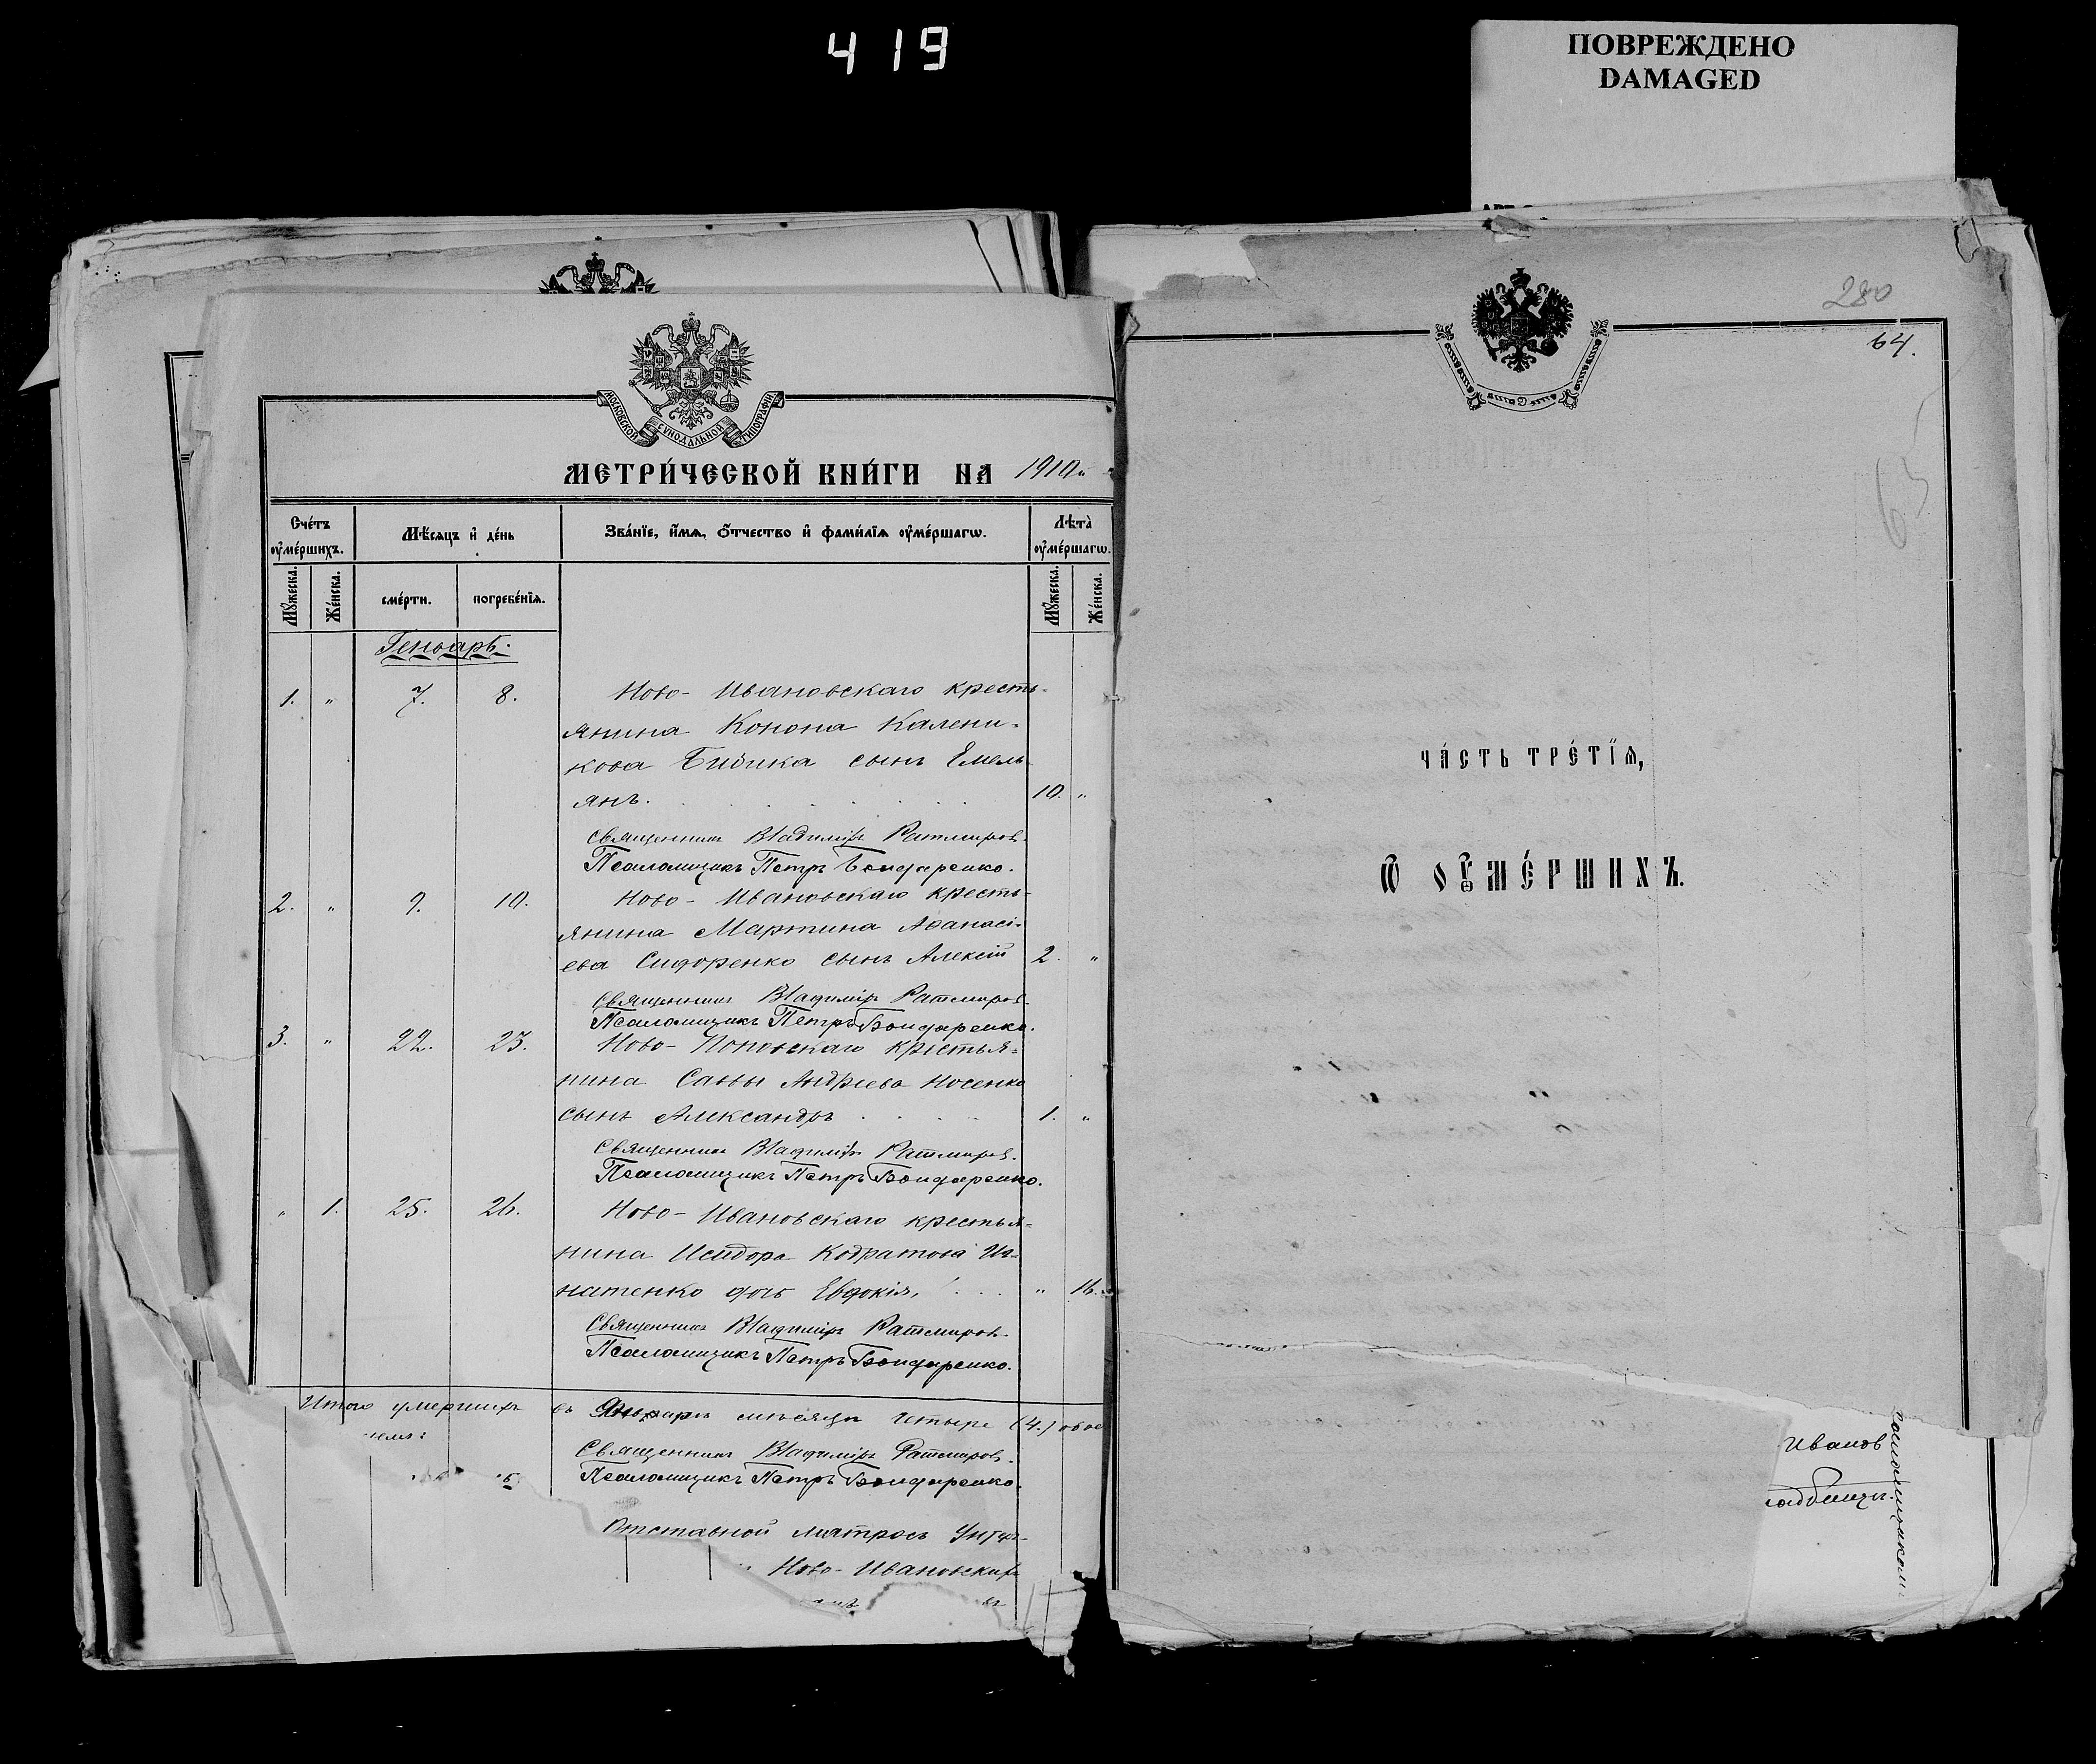 419
ПОВРЕЖДЕНО
DAMAGED
МОСКОВСКОЙ СѴНОДАЛЬНОЙ ТИПОГРАФІИ
МЕТРИ́ЧЕСКОЙ КНИ́ГИ НА 1910
Сче́тъ оу҆ме́ршихъ.
Мѣ́сяцъ и҆ де́нь
Зва́нїе, и҆́мѧ, ѻ҆́тчество и҆ фами́лїѧ оу҆ме́ршагѡ.
Лѣта̀ оу҆ме́ршагѡ.
Мꙋ́жеска. Же́нска.
сме́рти. погребе́нїѧ.
Мꙋ́жеска. Же́нска.
Генварь.
1. „ 7. 8. Ново-Ивановскаго кресть-
янина Конона Калени-
кова Бибика сынъ Емель-
янъ. 10. „
Священникъ Владиміръ Ратмировъ.
Псаломщикъ Петръ Бондаренко.
2. „ 9. 10. Ново-Ивановскаго кресть-
янина Мартина Афанасі-
ева Сидоренко сынъ Алексій 2. „
Священникъ Владиміръ Ратмировъ.
Псаломщикъ Петръ Бондаренко.
3. „ 22. 23. Ново-Поповскаго крестья-
нина Саввы Андреева Носенко
сынъ Александръ 1. „
Священникъ Владиміръ Ратмировъ.
Псаломщикъ Петръ Бондаренко.
„ 1. 25. 26. Ново-Ивановскаго крестья-
нина Исидора Кодратова Иг-
натенко дочь Евдокія. „ 16.
Священникъ Владиміръ Ратмировъ.
Псаломщикъ Петръ Бондаренко.
Итого умершихъ въ Январѣ мѣсяцѣ четыре (4.) обое
Священникъ Владиміръ Ратмировъ.
Псаломщикъ Петръ Бондаренко.
Отставной матросъ
Ново-Ивановскій
280
64.
65
ЧА́СТЬ ТРЕ́ТЇѦ,
Ѡ҆ ОУ҆МЕ́РШИХЪ.
Иванов